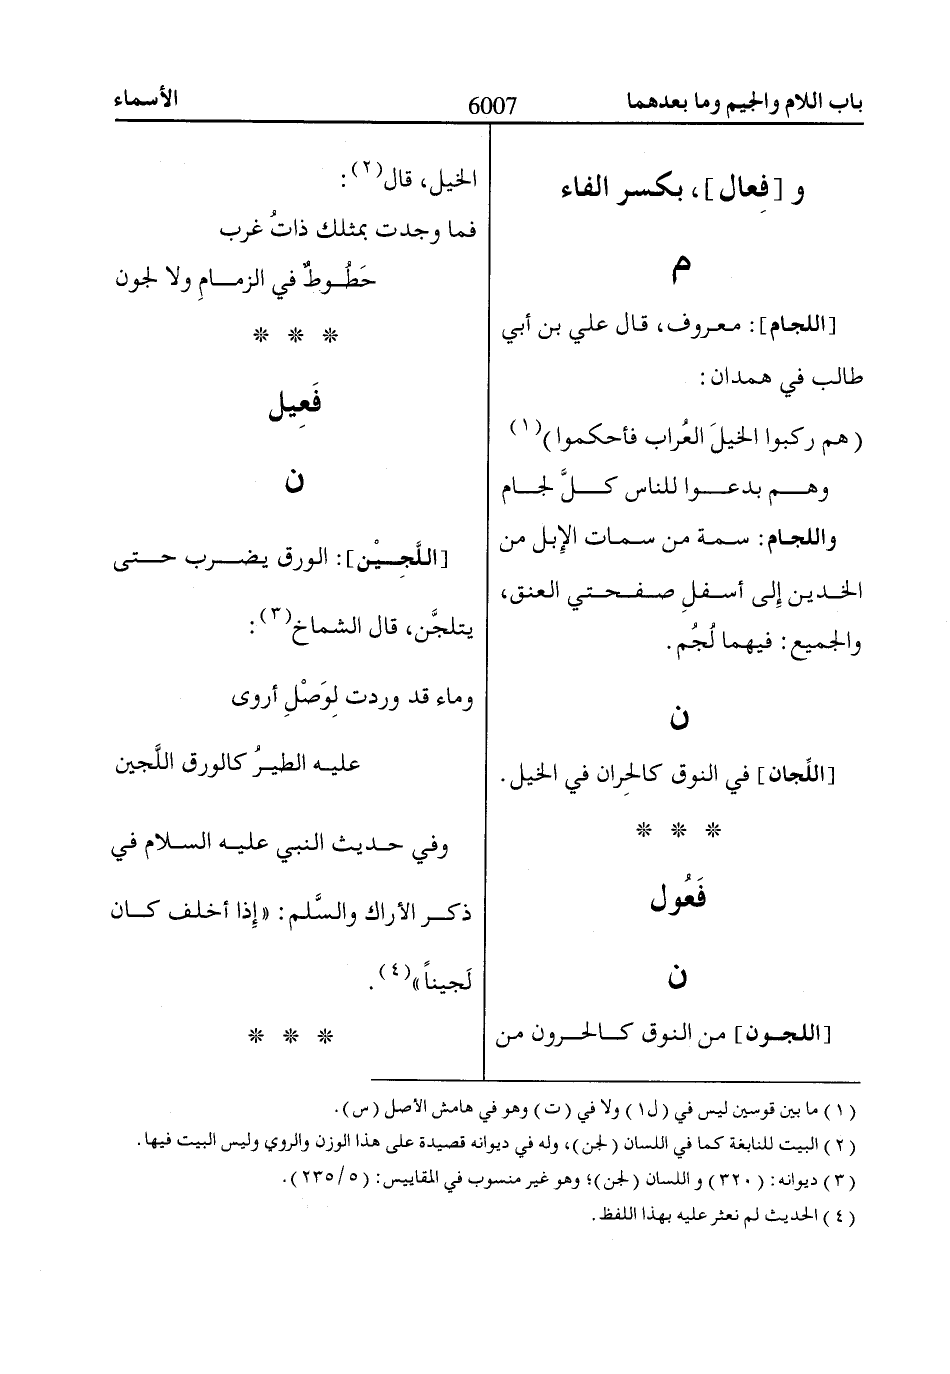 باب اللام والجيم وما بعدهما
6007
الأسماء
و [فِعال]، بكسر الفاء
م
[اللجام]: معروف، قال علي بن أبي
طالب في همدان:
(هم ركبوا الخيلَ العُراب فأحكموا)(١)
وهـم بدعـوا للناس كـلَّ لجـام
واللجام: سمة من سمات الإبل من
الخدين إلى أسفلِ صفحتي العنق،
والجميع: فيهما لُجُم.
ن
[اللِّجان] في النوق كالحِران في الخيل.
* * *
فَعُول
ن
[اللجون] من النوق كالحرون من
الخيل، قال(٢):
فما وجدت بمثلك ذاتُ غرب
حَطُوطٌ في الزمامِ ولا لجون
* * *
فَعِيل
ن
[اللَّجِيْن]: الورق يضرب حتى
يتلجَّن، قال الشماخ(٣):
وماء قد وردت لِوَصْلِ أروى
عليه الطيرُ كالورق اللَّجين
وفي حديث النبي عليه السلام في
ذكر الأراك والسَّلم: «إذا أخلف كان
لَجيناً»(٤).
* * *
(١) ما بين قوسين ليس في (ل١) ولا في (ت) وهو في هامش الأصل (س).
(٢) البيت للنابغة كما في اللسان (لجن)، وله في ديوانه قصيدة على هذا الوزن والروي وليس البيت فيها.
(٣) ديوانه: (٣٢٠) و اللسان (لجن)؛ وهو غير منسوب في المقاييس: (٥/٢٣٥).
(٤) الحديث لم نعثر عليه بهذا اللفظ.